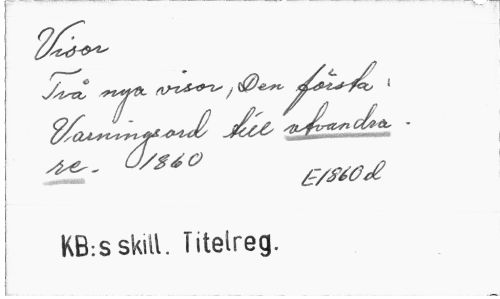 Visor
Två nya visor, Den första:
Varningsord till utvandra-
re. 1860
E1860d
KB:s skill. Titelreg.